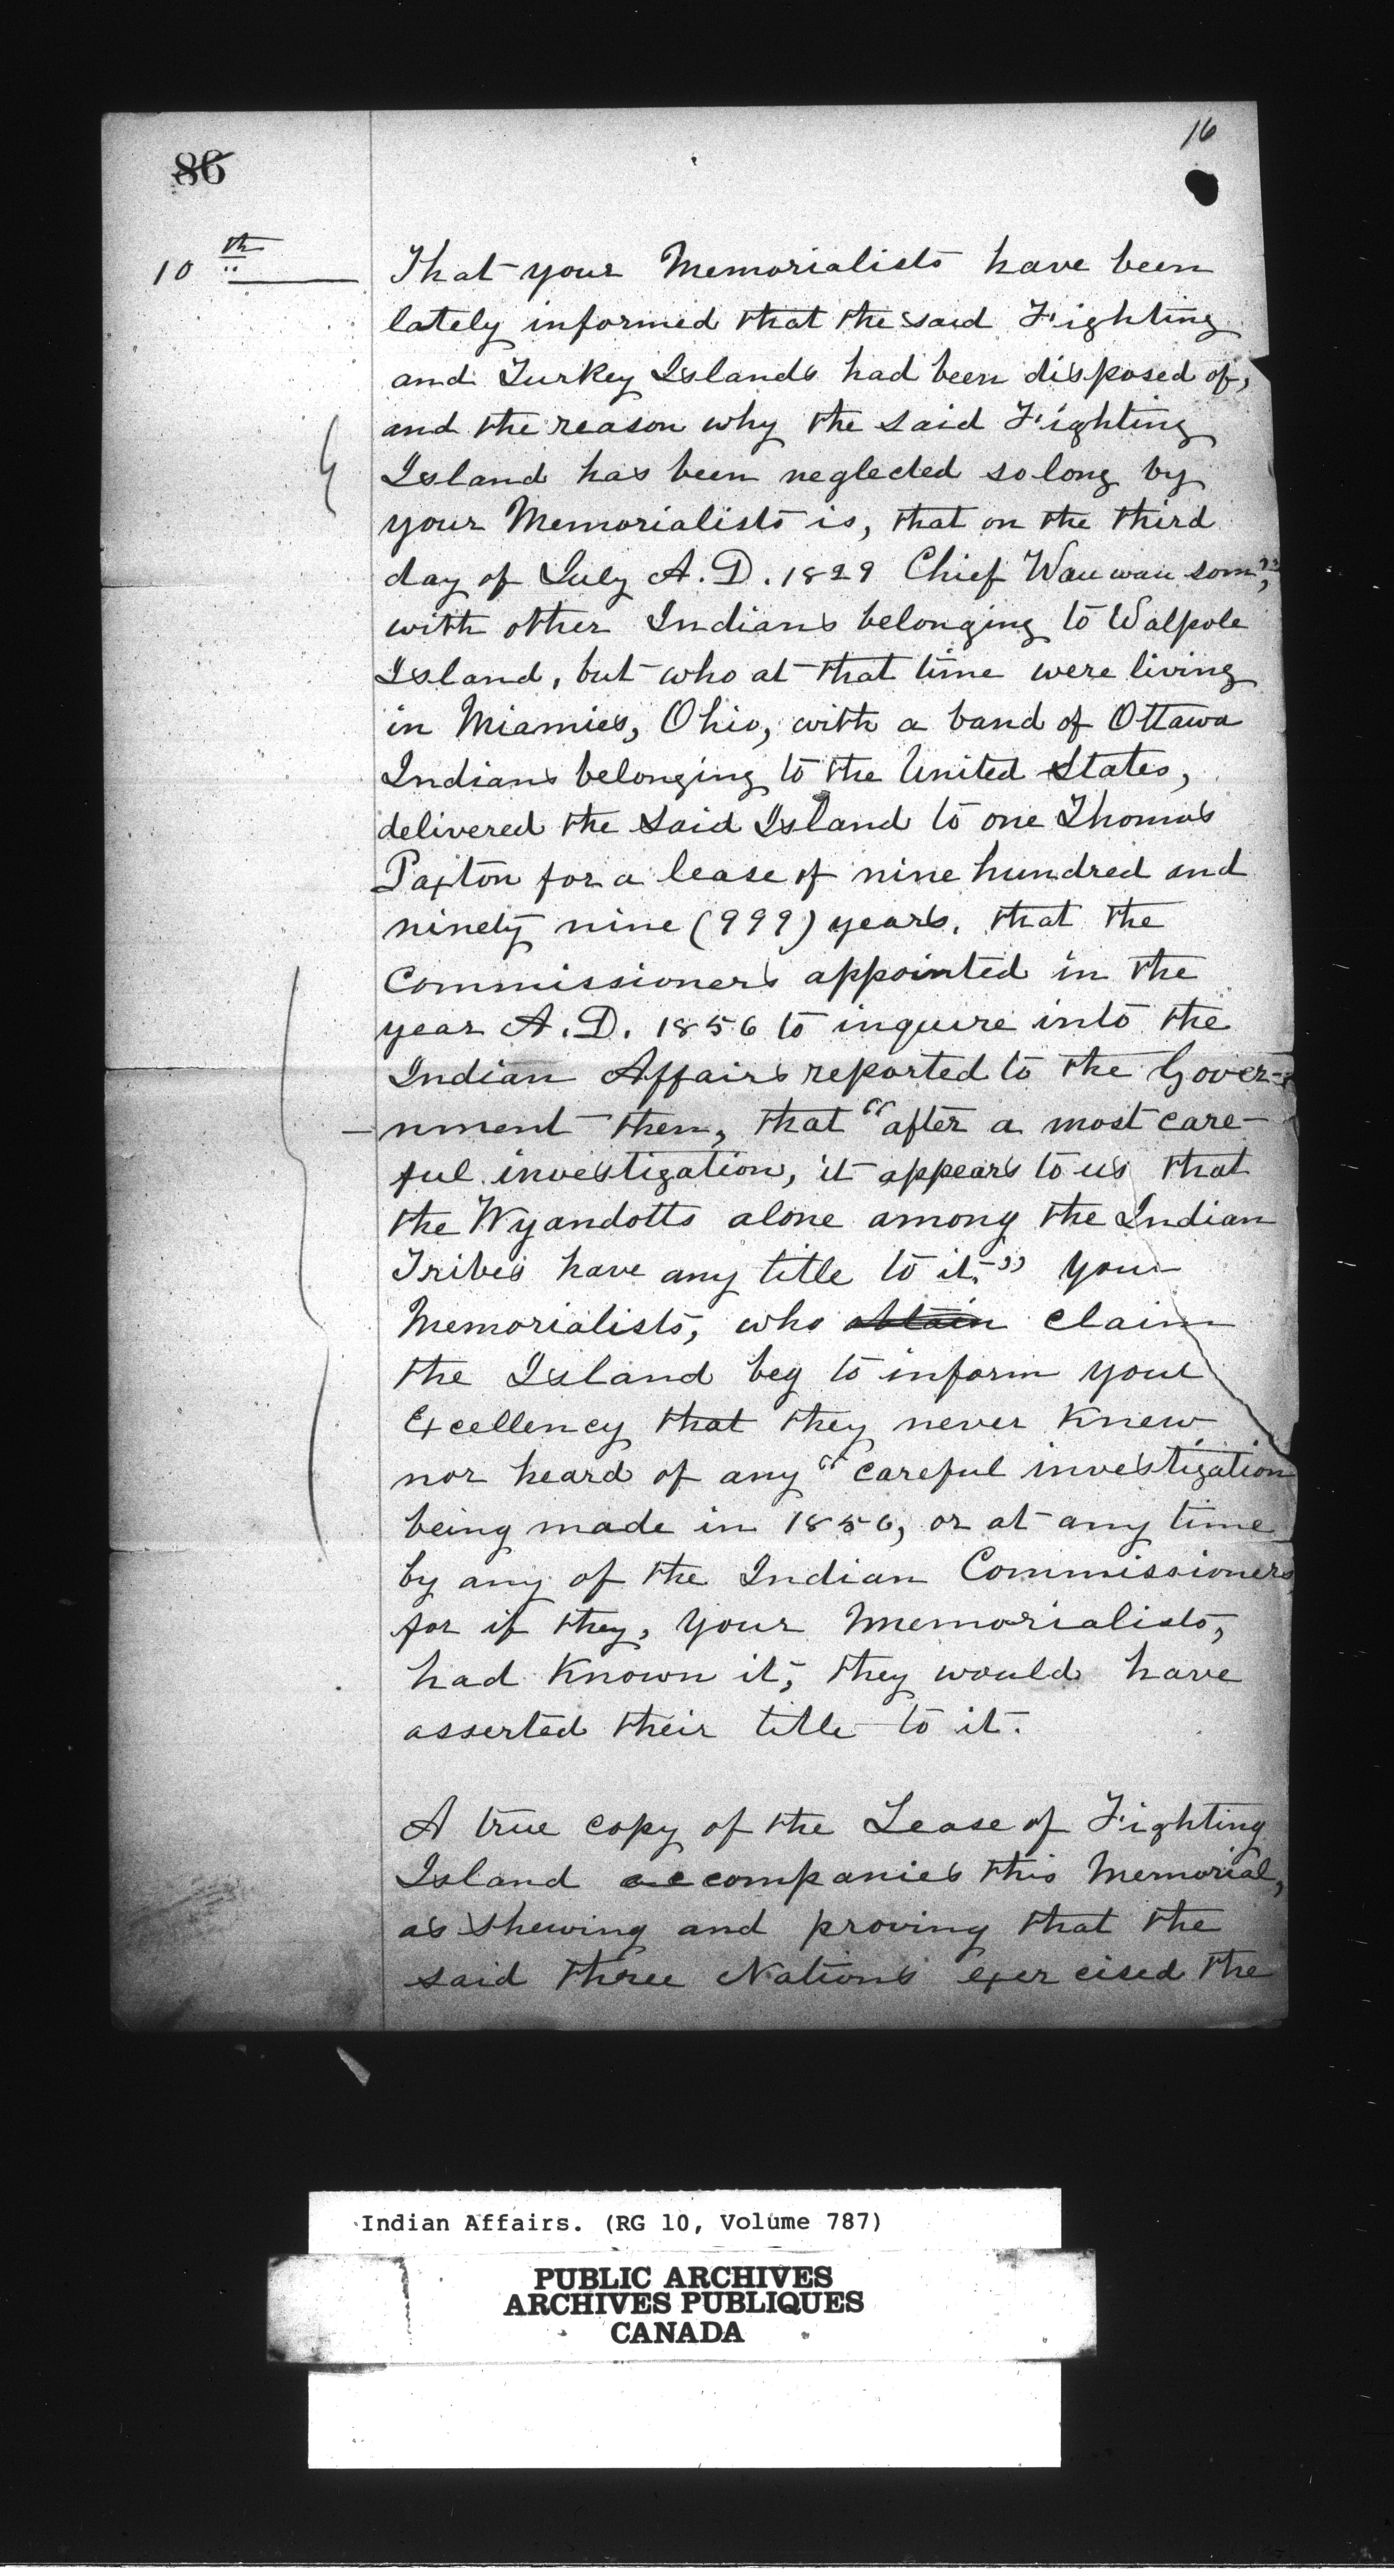 86
16
10 th
That your Memorialists have been
lately informed that the said Fighting
and Turkey Islands had been disposed of,
and the reason why the said Fighting
Island has been neglected so long by
your Memorialists is, that on the third
day of July A.D. 1829 Chief Wauwausom,"
with other Indians belonging to Walpole
Island, but who at that time were living
in Miamies, Ohio, with a band of Ottawa
Indians belonging to the United States,
delivered the said Island to one Thomas
Paxton for a lease of nine hundred and
ninety nine (999) years. that the
Commissioners appointed in the
year A.D. 1856 to inquire into the
Indian Affairs reported to the Gover-
-nment then, that "after a most care-
ful investigation, it appears to us that
the Wyandotts alone among the Indian
Tribes have any title to it." your
Memorialists, who obtain claim
the Island beg to inform your
Excellency that they never knew
nor heard of any "careful investigation
being made in 1856, or at any time
by any of the Indian Commissioners
for if they, your Memorialists,
had known it, they would have
asserted their title to it.
A true copy of the Lease of Fighting
Island accompanies this Memorial,
as shewing and proving that the
said three Nations exercised the
Indian Affairs. (RG 10, Volume 787)
PUBLIC ARCHIVES
ARCHIVES PUBLIQUES
CANADA